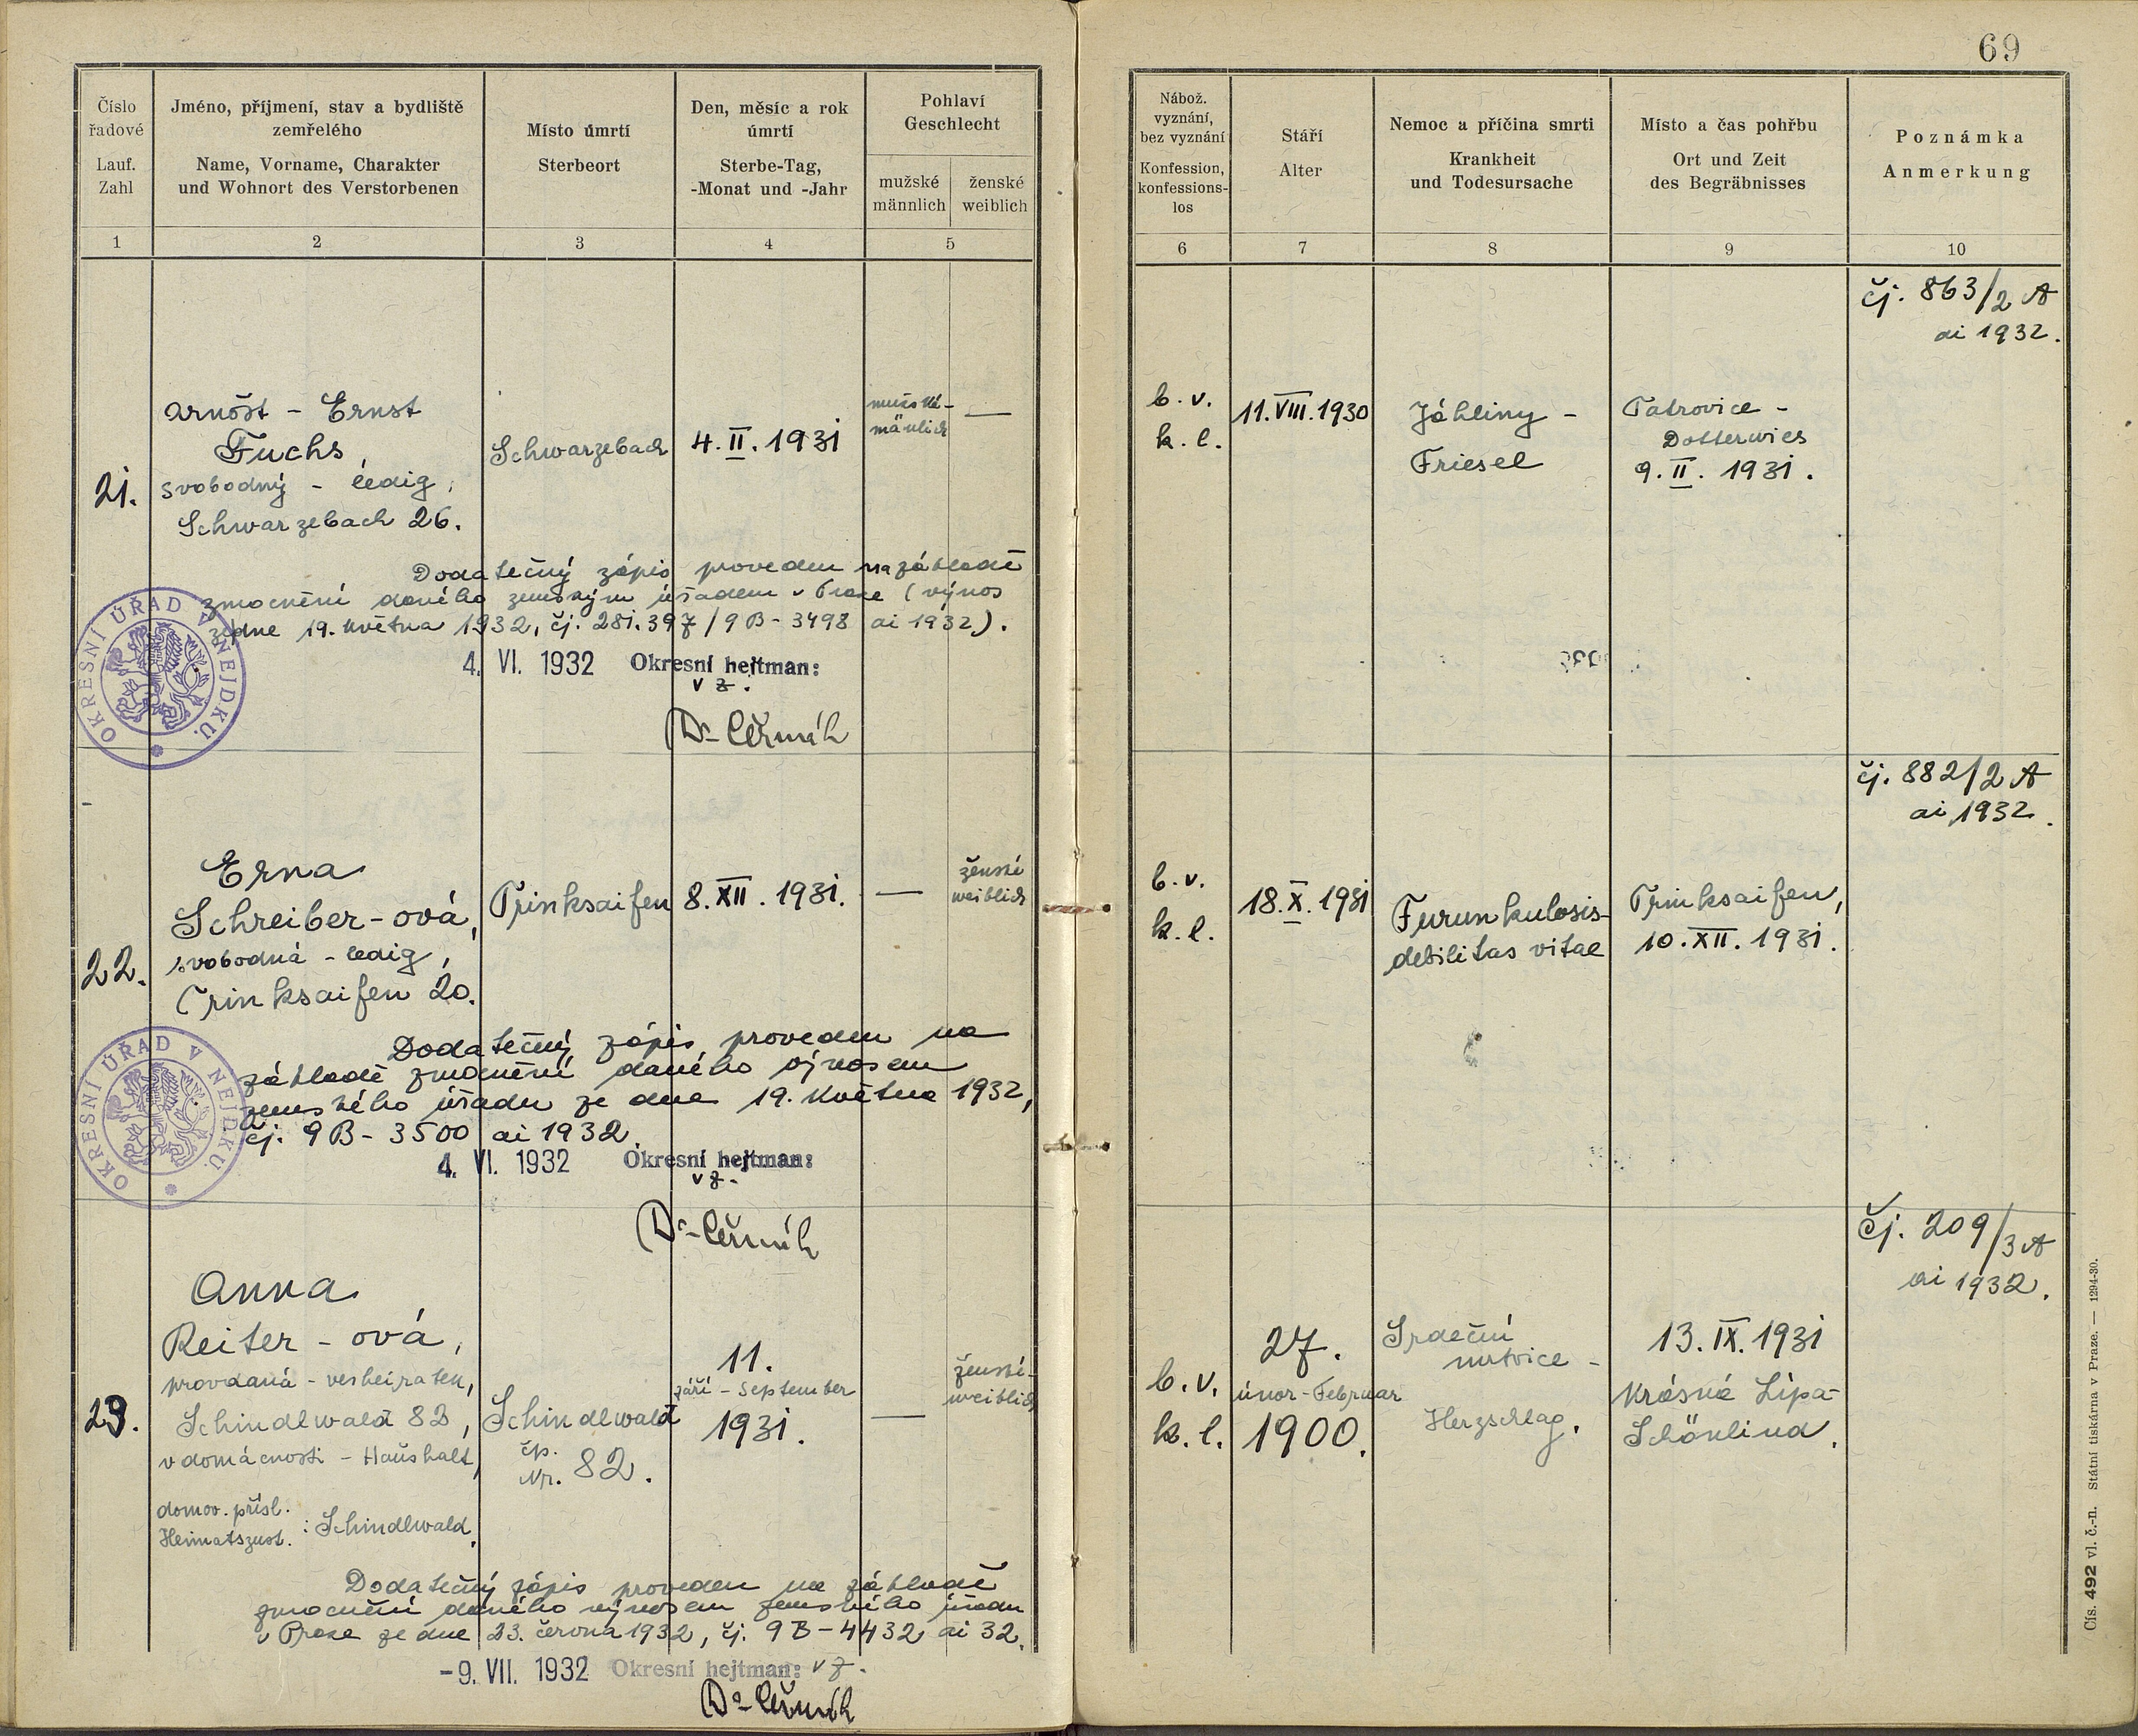 69
Číslo
řadové
Lauf.
Zahl
Jméno, příjmení, stav a bydliště
zemřelého
Name, Vorname, Charakter
und Wohnort des Verstorbenen
Místo úmrtí
Sterbeort
Den, měsíc a rok
úmrtí
Sterbe-Tag,
-Monat und -Jahr
Pohlaví
Geschlecht
mužské
männlich
ženské
weiblich
Nábož.
vyznání,
bez vyznání
Konfession,
konfessions-
los
Stáří
Alter
Nemoc a příčina smrti
Krankheit
und Todesursache
Místo a čas pohřbu
Ort und Zeit
des Begräbnisses
Poznámka
Anmerkung
1 2 3 4 5 6 7 8 9 10
21.
Arnošt - Ernst
Fuchs,
svobodný - ledig,
Schwarzebach 26.
Schwarzebach
4. II. 1931
mužské-
mänlich
—
b. v.
k. l.
11. VIII. 1930
Jáhliny -
Friesel
Tatrovice -
Dotterwies
9. II. 1931.
čj. 863/2 A
ai 1932.
Dodatečný zápis proveden na základě
zmocnění daného zemským úřadem v Praze (výnos
ze dne 19. května 1932, čj. 281.397/9B-3498 ai 1932).
4. VI. 1932 Okresní hejtman:
v z.
Dr Čermák
OKRESNÍ ÚŘAD V NEJDKU.
22.
Erna
Schreiber-ová,
svobodná - ledig,
Trinksaifen 20.
Trinksaifen
8. XII. 1931.
—
ženské
weiblich
b. v.
k. l.
18. X. 1931
Furunkulosis-
debilitas vitae
Trinksaifen,
10. XII. 1931.
čj. 882/2 A
ai 1932.
Dodatečný zápis proveden na
základě zmocnění daného výnosem
zemského úřadu ze dne 19. května 1932,
čj. 9B-3500 ai 1932.
4. VI. 1932 Okresní hejtman:
v z.
Dr Čermák
OKRESNÍ ÚŘAD V NEJDKU.
23.
Anna
Reiter-ová,
provdaná - verheiraten,
Schindlwald 82,
v domácnosti - Haushalt,
domov. přísl.
Heimatszust. : Schindlwald.
Schindlwald
čp.
Nr. 82.
11.
září - September
1931.
—
ženské-
weiblich
b. v.
k. l.
27.
únor-Februar
1900.
Srdeční
mrtvice -
Herzschlag.
13. IX. 1931
Krásná Lípa-
Schönlind.
Čj. 209/3 A
ai 1932.
Dodatečný zápis proveden na základě
zmocnění daného výnosem zemského úřadu
v Praze ze dne 23. června 1932, čj. 9B-4432 ai 32.
-9. VII. 1932 Okresní hejtman: v z.
Dr Čermák
Čís. 492 vl. č.-n. Státní tiskárna v Praze. — 1294-30.